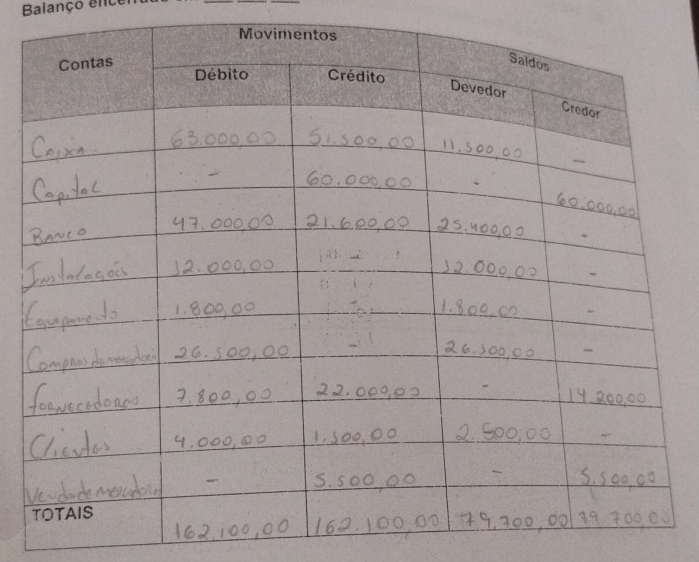 Balanço
Contas Movimentos Saldos
Débito Crédito Devedor Credor
Caixa 63.000,00 51.500,00 11.500,00 -
Capital - 60.000,00 - 60.000,00
Banco 47.000,00 21.600,00 25.400,00 -
Instalações 12.000,00 - 12.000,00 -
Equipamento 1.800,00 - 1.800,00 -
Compras de mercadoria 26.500,00 - 26.500,00 -
fornecedores 7.800,00 22.000,00 - 14.200,00
Clientes 4.000,00 1.500,00 2.500,00 -
Venda de mercadoria - 5.500,00 - 5.500,00
TOTAIS 162.100,00 162.100,00 79.700,00 79.700,00